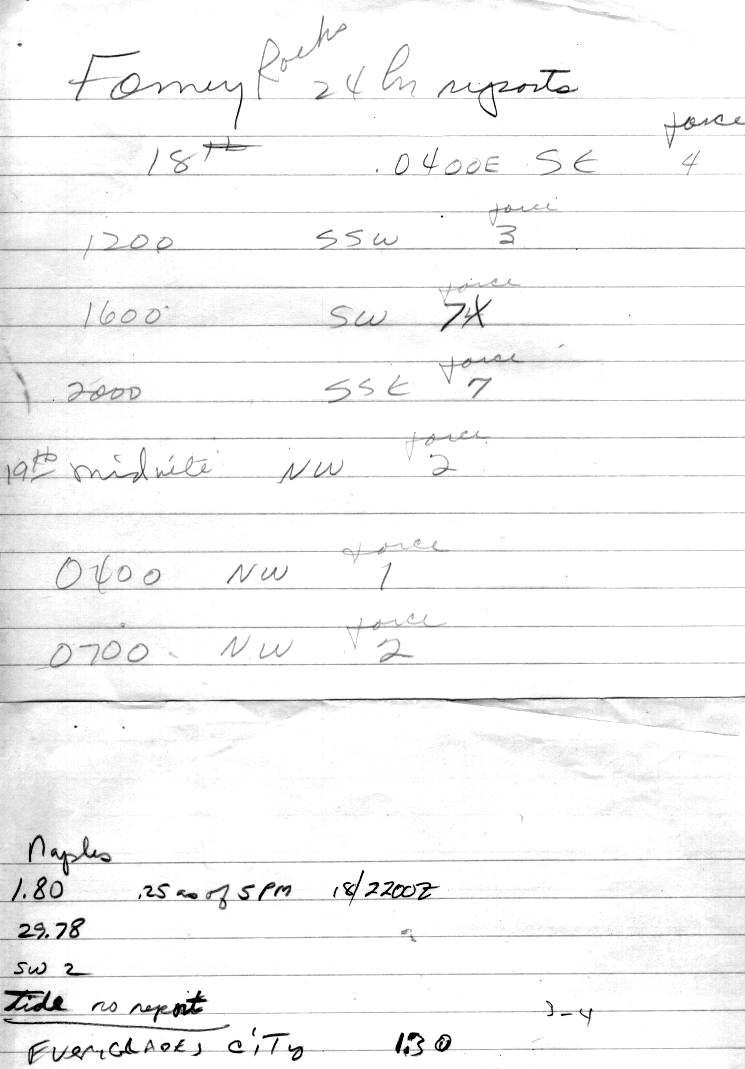 Fowey Rocks 24 hr reports
18th .0400E SE force 4
1200 SSW force 3
1600 SW force 7
2000 SSE force 7
19th midnite NW force 2
0400 NW force 1
0700 NW force 2
Naples
1.80 .25 as of 5 PM 18/2200Z
29.78
SW 2
tide no report
3-4
EVERGLADES CITY 1.30